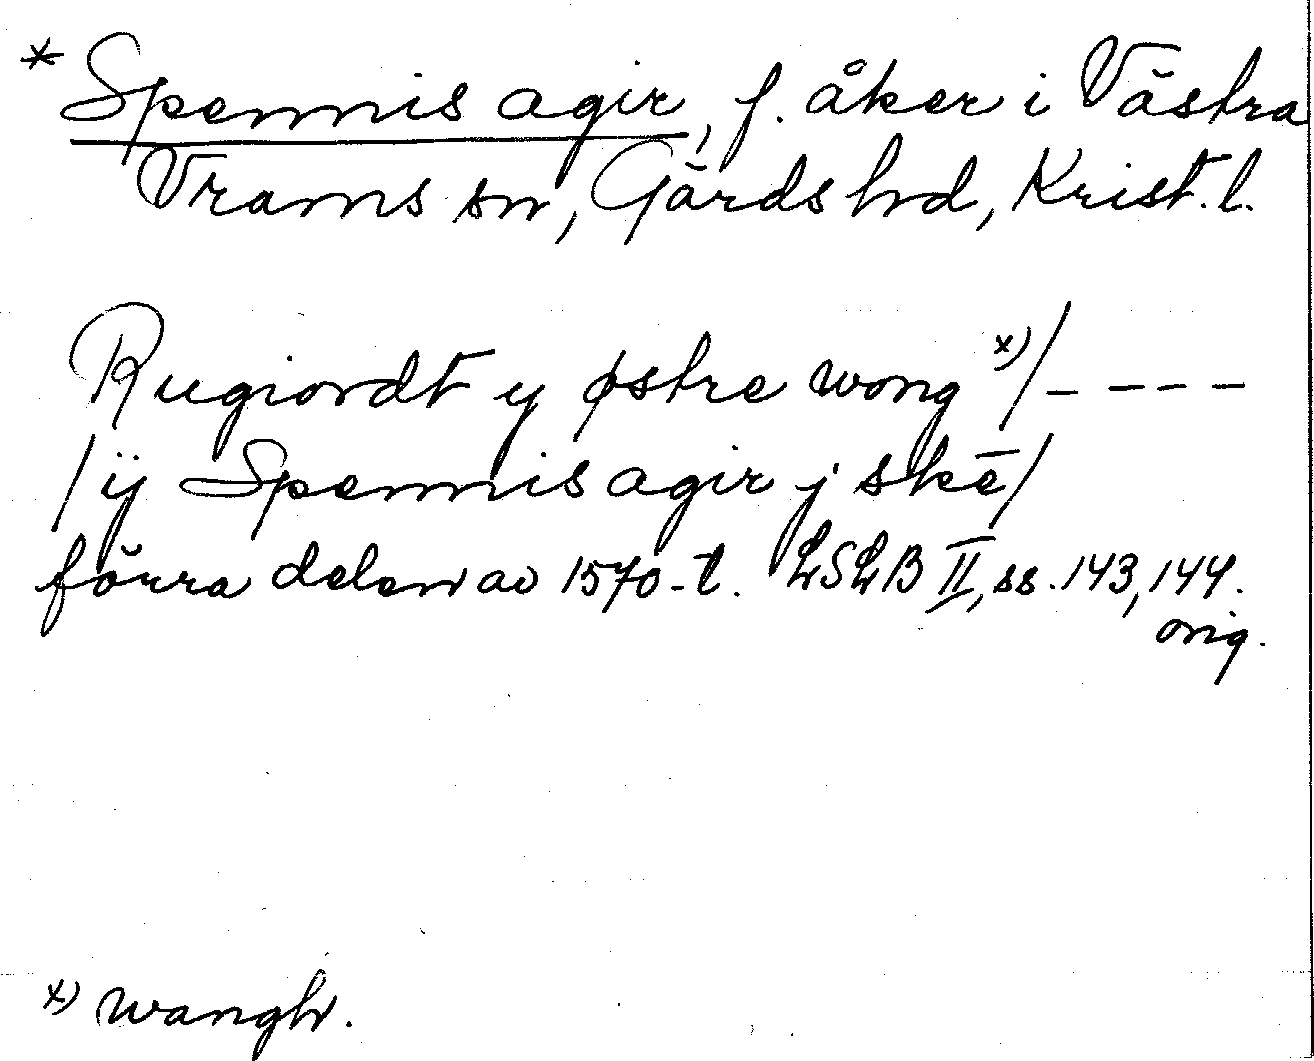 * Spennis agir, f. åker i Västra
Vrams sn, Gärds hd, Krist. l.
Rugiordt y østre wong x)/- - - -
/ÿ Spennis agir j skē/
förra delen av 1570-t. LSLB II, ss. 143, 144.
orig.
x) wangh.